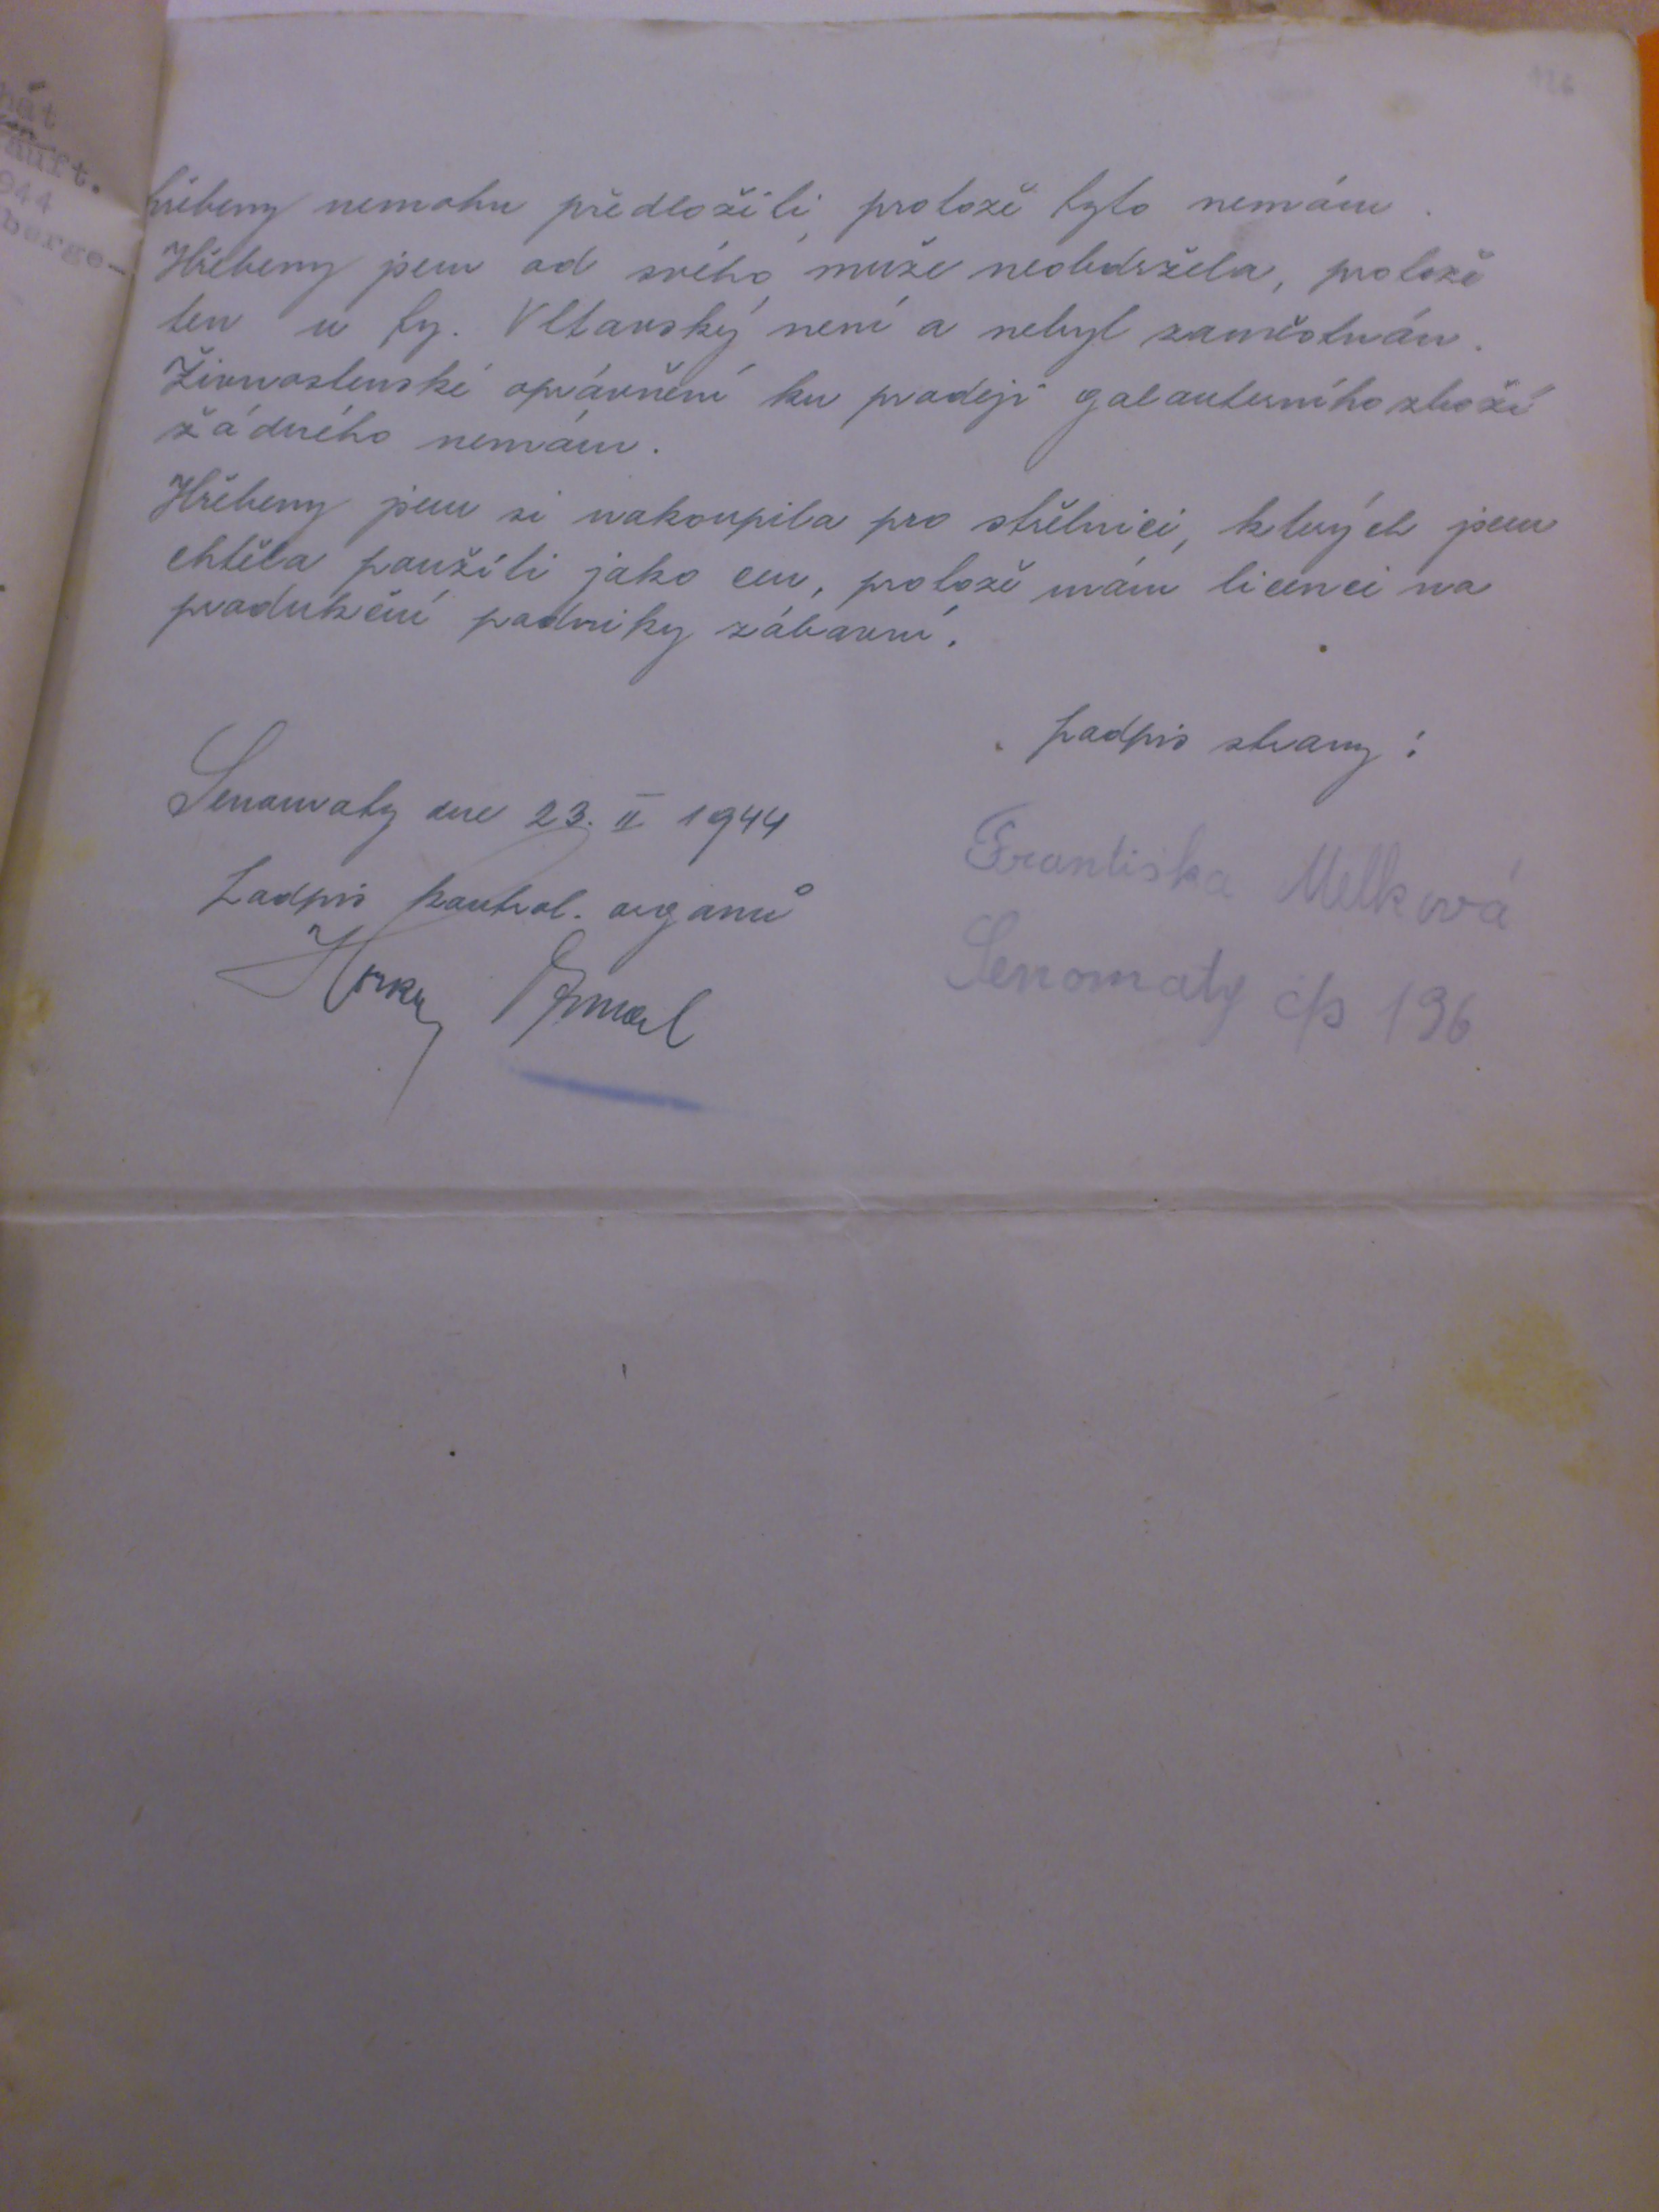 126
hřebeny nemohu předložiti, protože tyto nemám.
Hřebeny jsem od svého muže neobdržela, protože
ten u fy. Vltavský není a nebyl zaměstnán.
Živnostenské oprávnění ku prodeji galanterního zboží
žádného nemám.
Hřebeny jsem si nakoupila pro střelnici, kterých jsem
chtěla použíti jako cen, protože mám licenci na
produkční podniky zábavní.
podpis strany:
Senomaty dne 23. II 1944
Podpis kontrol. orgánů
Horky
Františka Melková
Senomaty čp 196